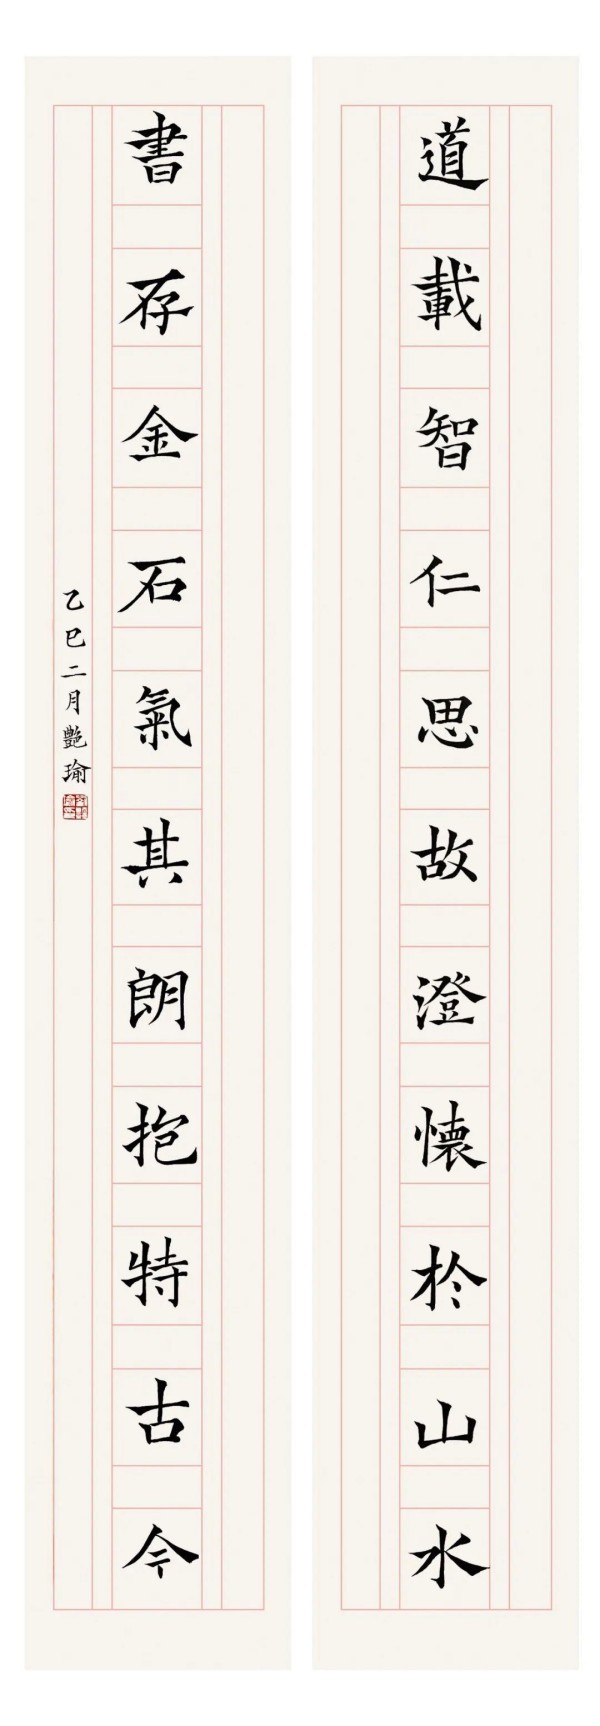 道載智仁思故澄懷於山水
書存金石氣其朗抱特古今
乙巳二月艷瑜